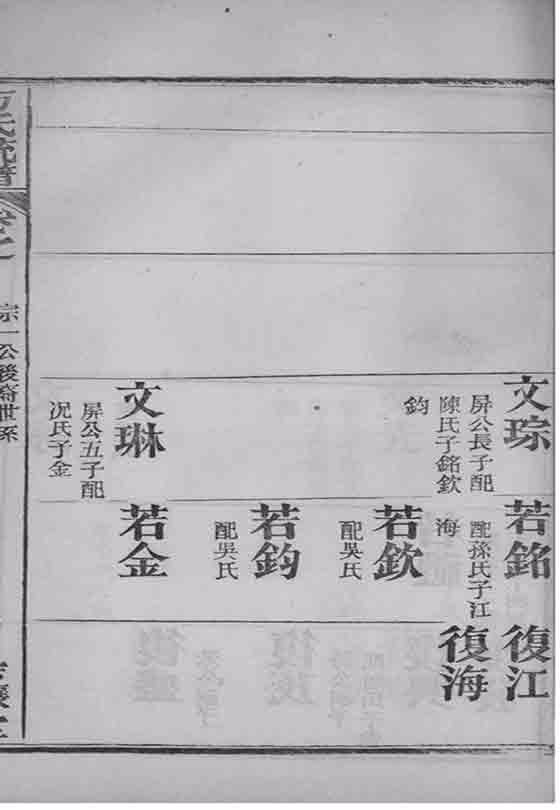 文琮
屏公長子配
陳氏子銘欽
鈞
文琳
屏公五子配
況氏子金
若銘
配孫氏子江
海
若欽
配吳氏
若鈞
配吳氏
若金
復江
復海
氏統譜
宗一公後裔世系